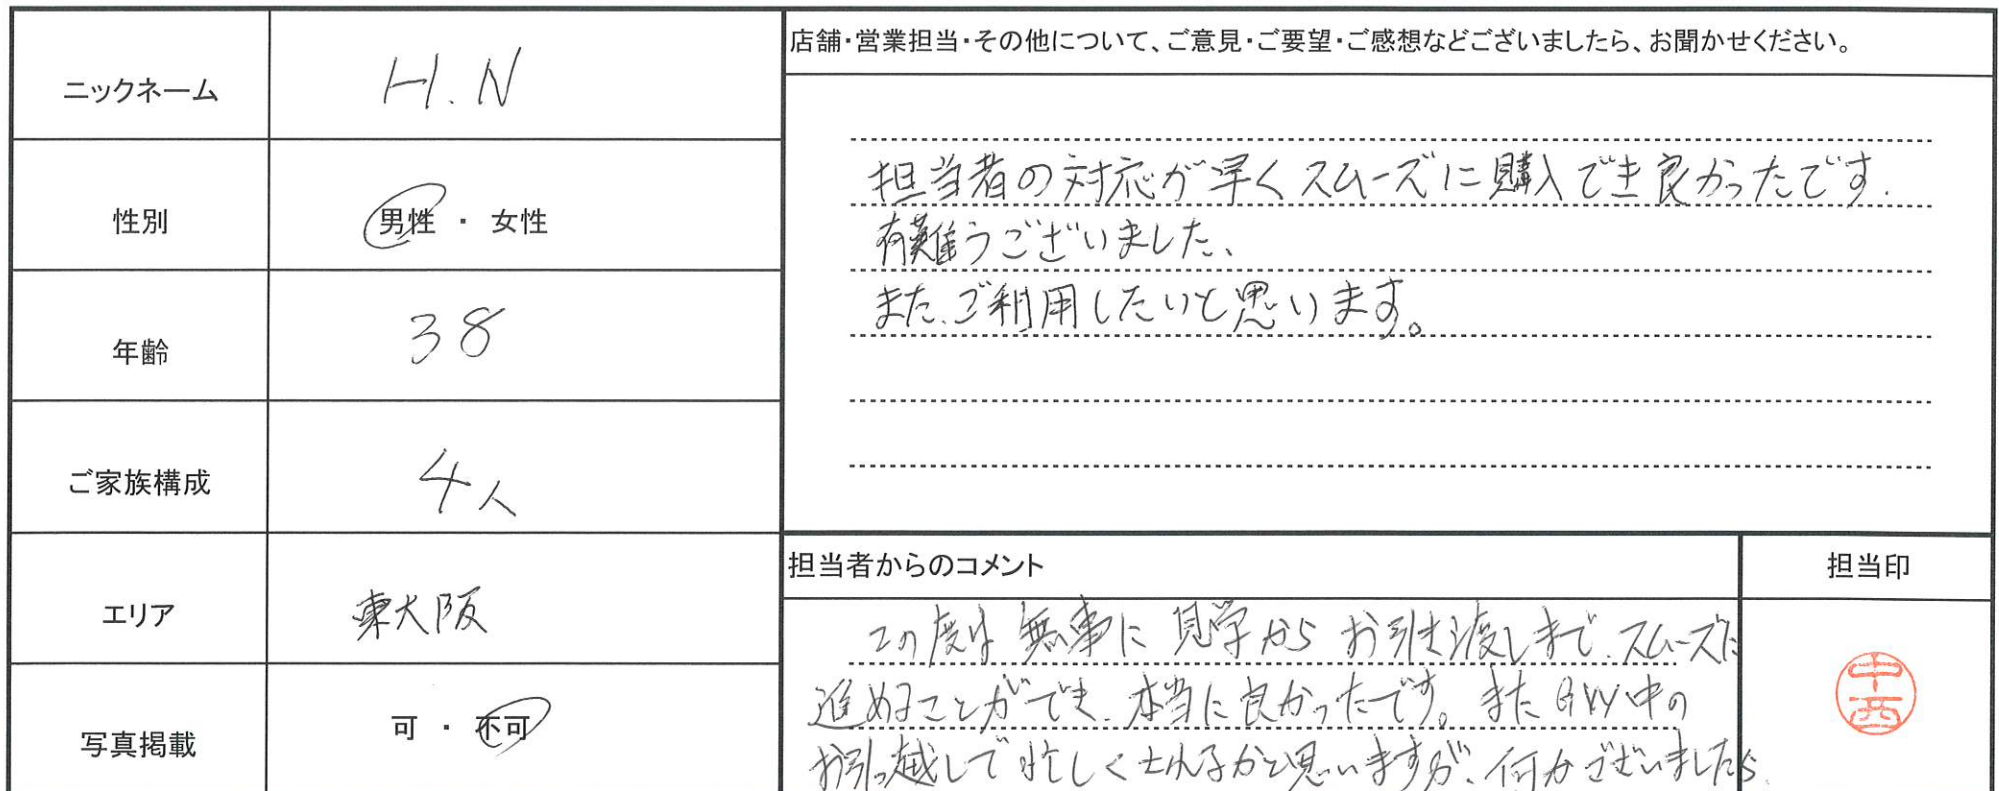 ニックネーム
H.N
性別
男性 ・ 女性
年齢
38
ご家族構成
4人
エリア
東大阪
写真掲載
可 ・ 不可
店舗・営業担当・その他について、ご意見・ご要望・ご感想などございましたら、お聞かせください。
担当者の対応が早くスムーズに購入でき良かったです.
有難うございました、
また、ご利用したいと思います。
担当者からのコメント
この度は無事に見学からお引き渡しまで、スムーズに
進めることができ、本当に良かったです。またGW中の
お引っ越しで忙しくなるかと思いますが、何かございましたら
担当印
中西